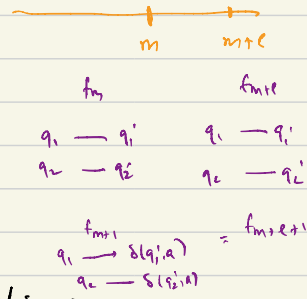 m m+l
fm fm+l
q₁ — q₁' q₁ — q₁'
q₂ — q₂' q₂ — q₂'
fm+1 = fm+l+1
q₁ → δ(q₁', a)
q₂ — δ(q₂', a)